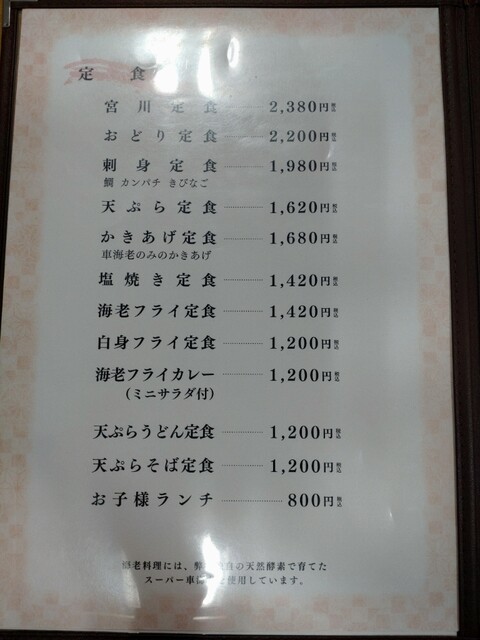 定食
宮川定食 2,380円税込
おどり定食 2,200円税込
刺身定食 1,980円税込
鯛 カンパチ きびなご
天ぷら定食 1,620円税込
かきあげ定食 1,680円税込
車海老のみのかきあげ
塩焼き定食 1,420円税込
海老フライ定食 1,420円税込
白身フライ定食 1,200円税込
海老フライカレー 1,200円税込
（ミニサラダ付）
天ぷらうどん定食 1,200円税込
天ぷらそば定食 1,200円税込
お子様ランチ 800円税込
老料理には、弊 の天然酵素で育てた
スーパー車 使用しています。